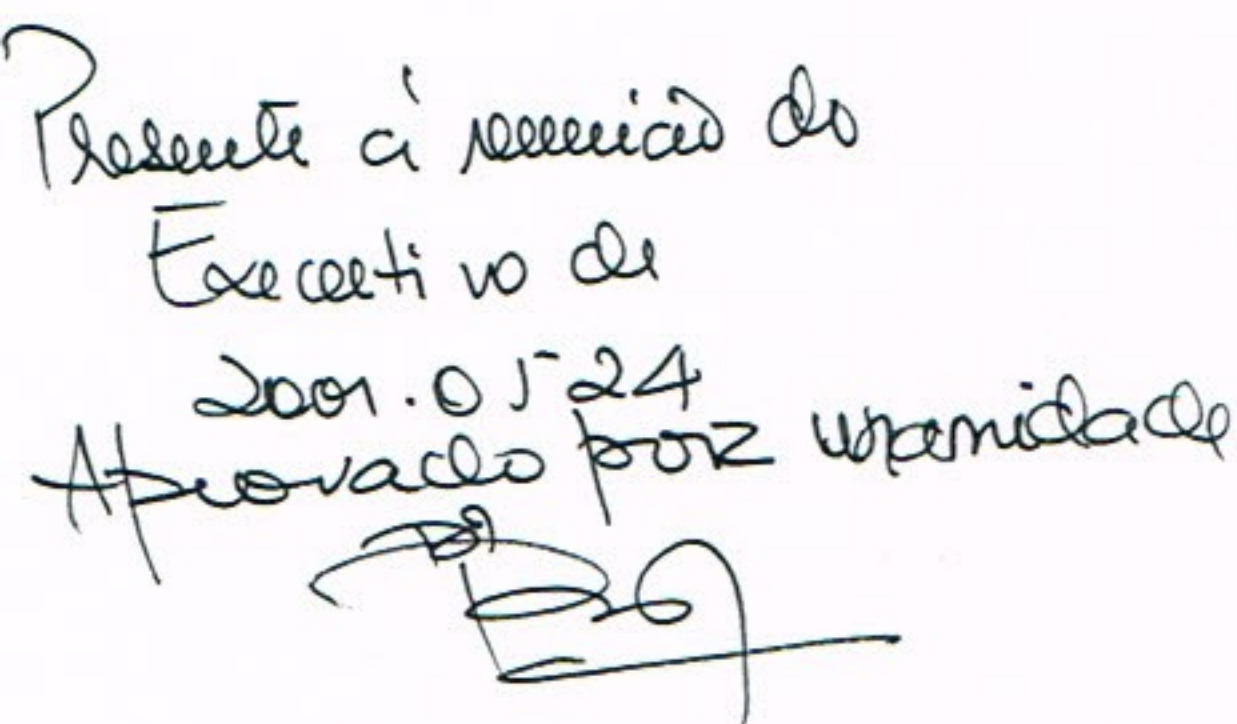 Presente à reunião do
Executivo de
2001.05 24
Aprovado por unanimidade